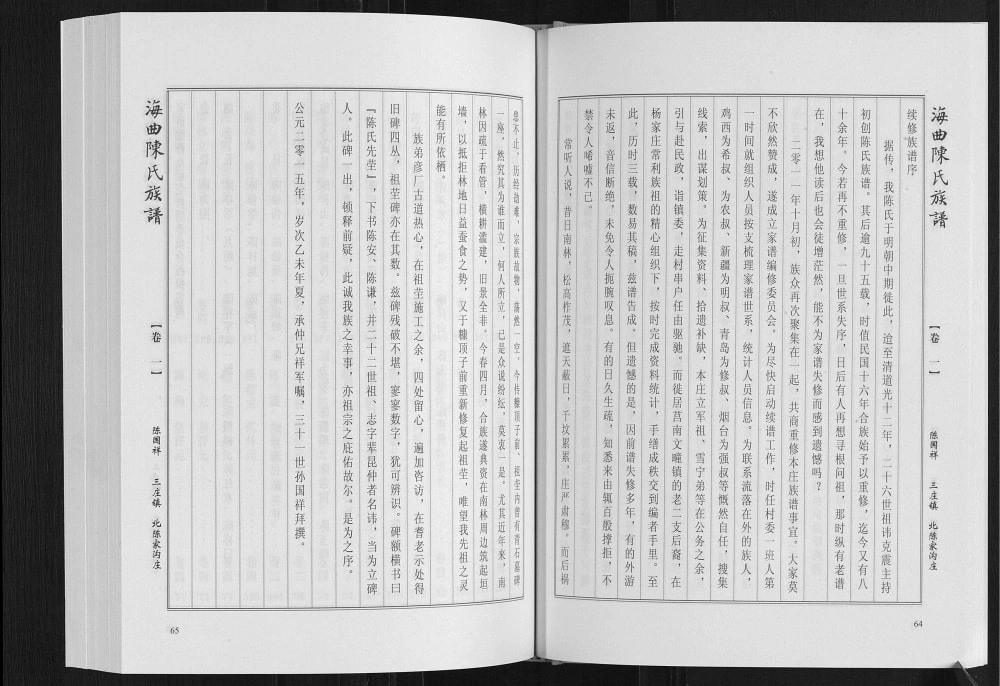 海曲陳氏族譜
【卷一】
陈国祥 三庄镇 北陈家沟庄
64
续修族谱序
据传，我陈氏于明朝中期徙此，迨至清道光十二年，二十六世祖讳克震主持
初创陈氏族谱。其后逾九十五载，时值民国十六年合族始予以重修，迄今又有八
十余年。今若再不重修，一旦世系失序，日后有人再想寻根问祖，那时纵有老谱
在，我想他读后也会徒增茫然，能不为家谱失修而感到遗憾吗？
二零一一年十月初，族众再次聚集在一起，共商重修本庄族谱事宜。大家莫
不欣然赞成，遂成立家谱编修委员会。为尽快启动续谱工作，时任村委一班人第
一时间就组织人员按支梳理家谱世系，统计人员信息。为联系流落在外的族人，
鸡西为希叔、为农叔、新疆为明叔、青岛为修叔、烟台为强叔等慨然自任，搜集
线索，出谋划策。为征集资料、拾遗补缺，本庄立军祖、雪宁弟等在公务之余，
引与赴民政，诣镇委，走村串户任由驱驰。而徙居莒南文疃镇的老二支后裔，在
杨家庄常利族祖的精心组织下，按时完成资料统计，手缮成秩交到编者手里。至
此，历时三载，数易其稿，兹谱告成。但遗憾的是，因前谱失修多年，有的外游
未返，音信断绝，未免令人扼腕叹息。有的日久生疏，知悉来由辄百般撑拒，不
禁令人唏嘘不已。
常听人说，昔日南林，松高柞茂，遮天蔽日，千坟累累，庄严肃穆。而后祸
患不止，历经劫难，宗族故物，荡然一空。今传糠顶子前，祖茔内曾有青石墓碑
一座，然究其为谁而立，何人所立，已是众说纷纭，莫衷一是。尤其近年来，南
林因疏于看管，横耕滥建，旧景全非。今春四月，合族遂集资在南林周边筑起垣
墙，以抵拒林地日益蚕食之势，又于糠顶子前重新修复起祖茔，唯望我先祖之灵
能有所依栖。
族弟彦厂古道热心，在祖茔施工之余，四处留心，遍加咨访，在耆老示处得
旧碑四丛，祖茔碑亦在其数。兹碑残破不堪，寥寥数字，犹可辨识。碑额横书曰
『陈氏先茔』，下书陈安、陈谦，并二十二世祖、志字辈昆仲者名讳，当为立碑
人。此碑一出，顿释前疑，此诚我族之幸事，亦祖宗之庇佑故尔。是为之序。
公元二零一五年，岁次乙未年夏，承仲兄祥军嘱，三十一世孙国祥拜撰。
海曲陳氏族譜
【卷一】
陈国祥 三庄镇 北陈家沟庄
65